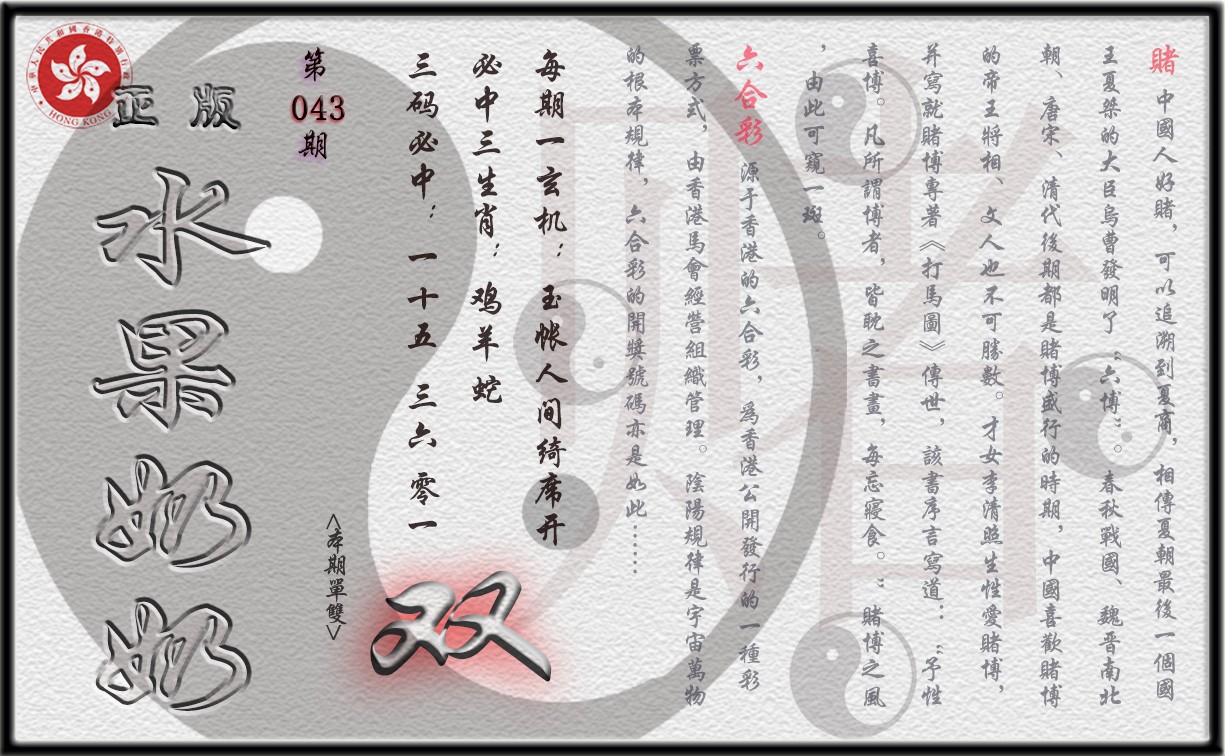 賭 中國人好賭，可以追溯到夏商，相傳夏朝最後一個國
王夏桀的大臣烏曹發明了“六博”。春秋戰國、魏晋南北
朝、唐宋、清代後期都是賭博盛行的時期，中國喜歡賭博
的帝王將相、文人也不可勝數。才女李清照生性愛賭博，
并寫就賭博專著《打馬圖》傳世，該書序言寫道：“予性
喜博。凡所謂博者，皆耽之書畫，每忘寢食。”賭博之風
，由此可窺一斑。
六合彩 源于香港的六合彩，爲香港公開發行的一種彩
票方式，由香港馬會經營組織管理。陰陽規律是宇宙萬物
的根本規律，六合彩的開獎號碼亦是如此……
每期一玄机：玉帐人间绮席开
必中三生肖：鸡羊蛇
三码必中：一十五 三六 零一
双
<本期單雙>
第
043
期
正版
水果奶奶
中華人民共和國香港特別行政區
HONG KONG
賭